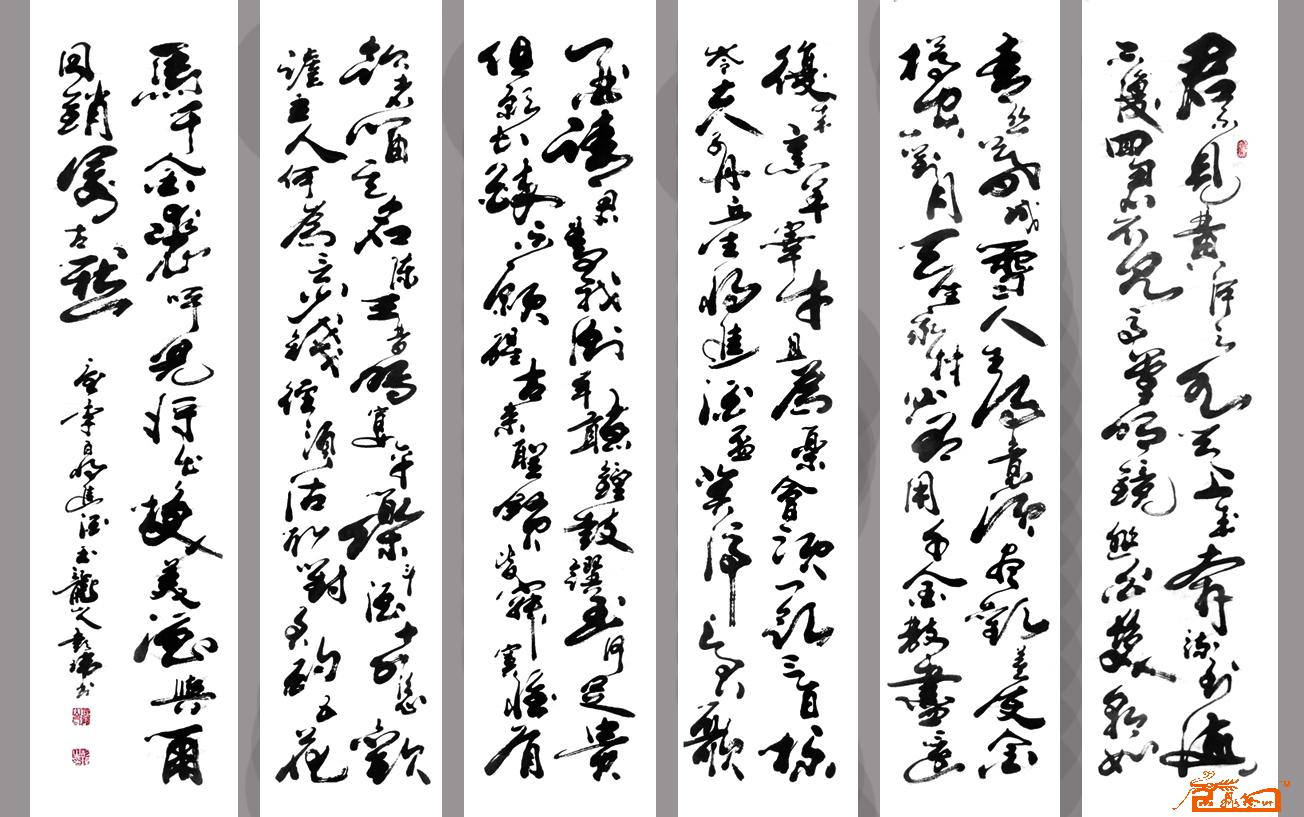 君不見黃河之水天上来奔流到海
不復回君不見高堂明鏡悲白髮朝如
青丝暮成雪人生得意須盡歡莫使金
樽空對月天生我材必有用千金散盡還
復来烹羊宰牛且為樂會須一飲三百杯
岑夫子丹丘生将進酒杯莫停與君歌
一曲請君為我側耳聽鐘鼓饌玉何足貴
但願長醉不願醒古来聖賢皆寂寞惟有
飲者留其名陳王昔時宴平樂斗酒十千恣歡
謔主人何為言少錢徑須沽取對君酌五花
馬千金裘呼兒将出換美酒與爾
同銷萬古愁
唐李白将進酒